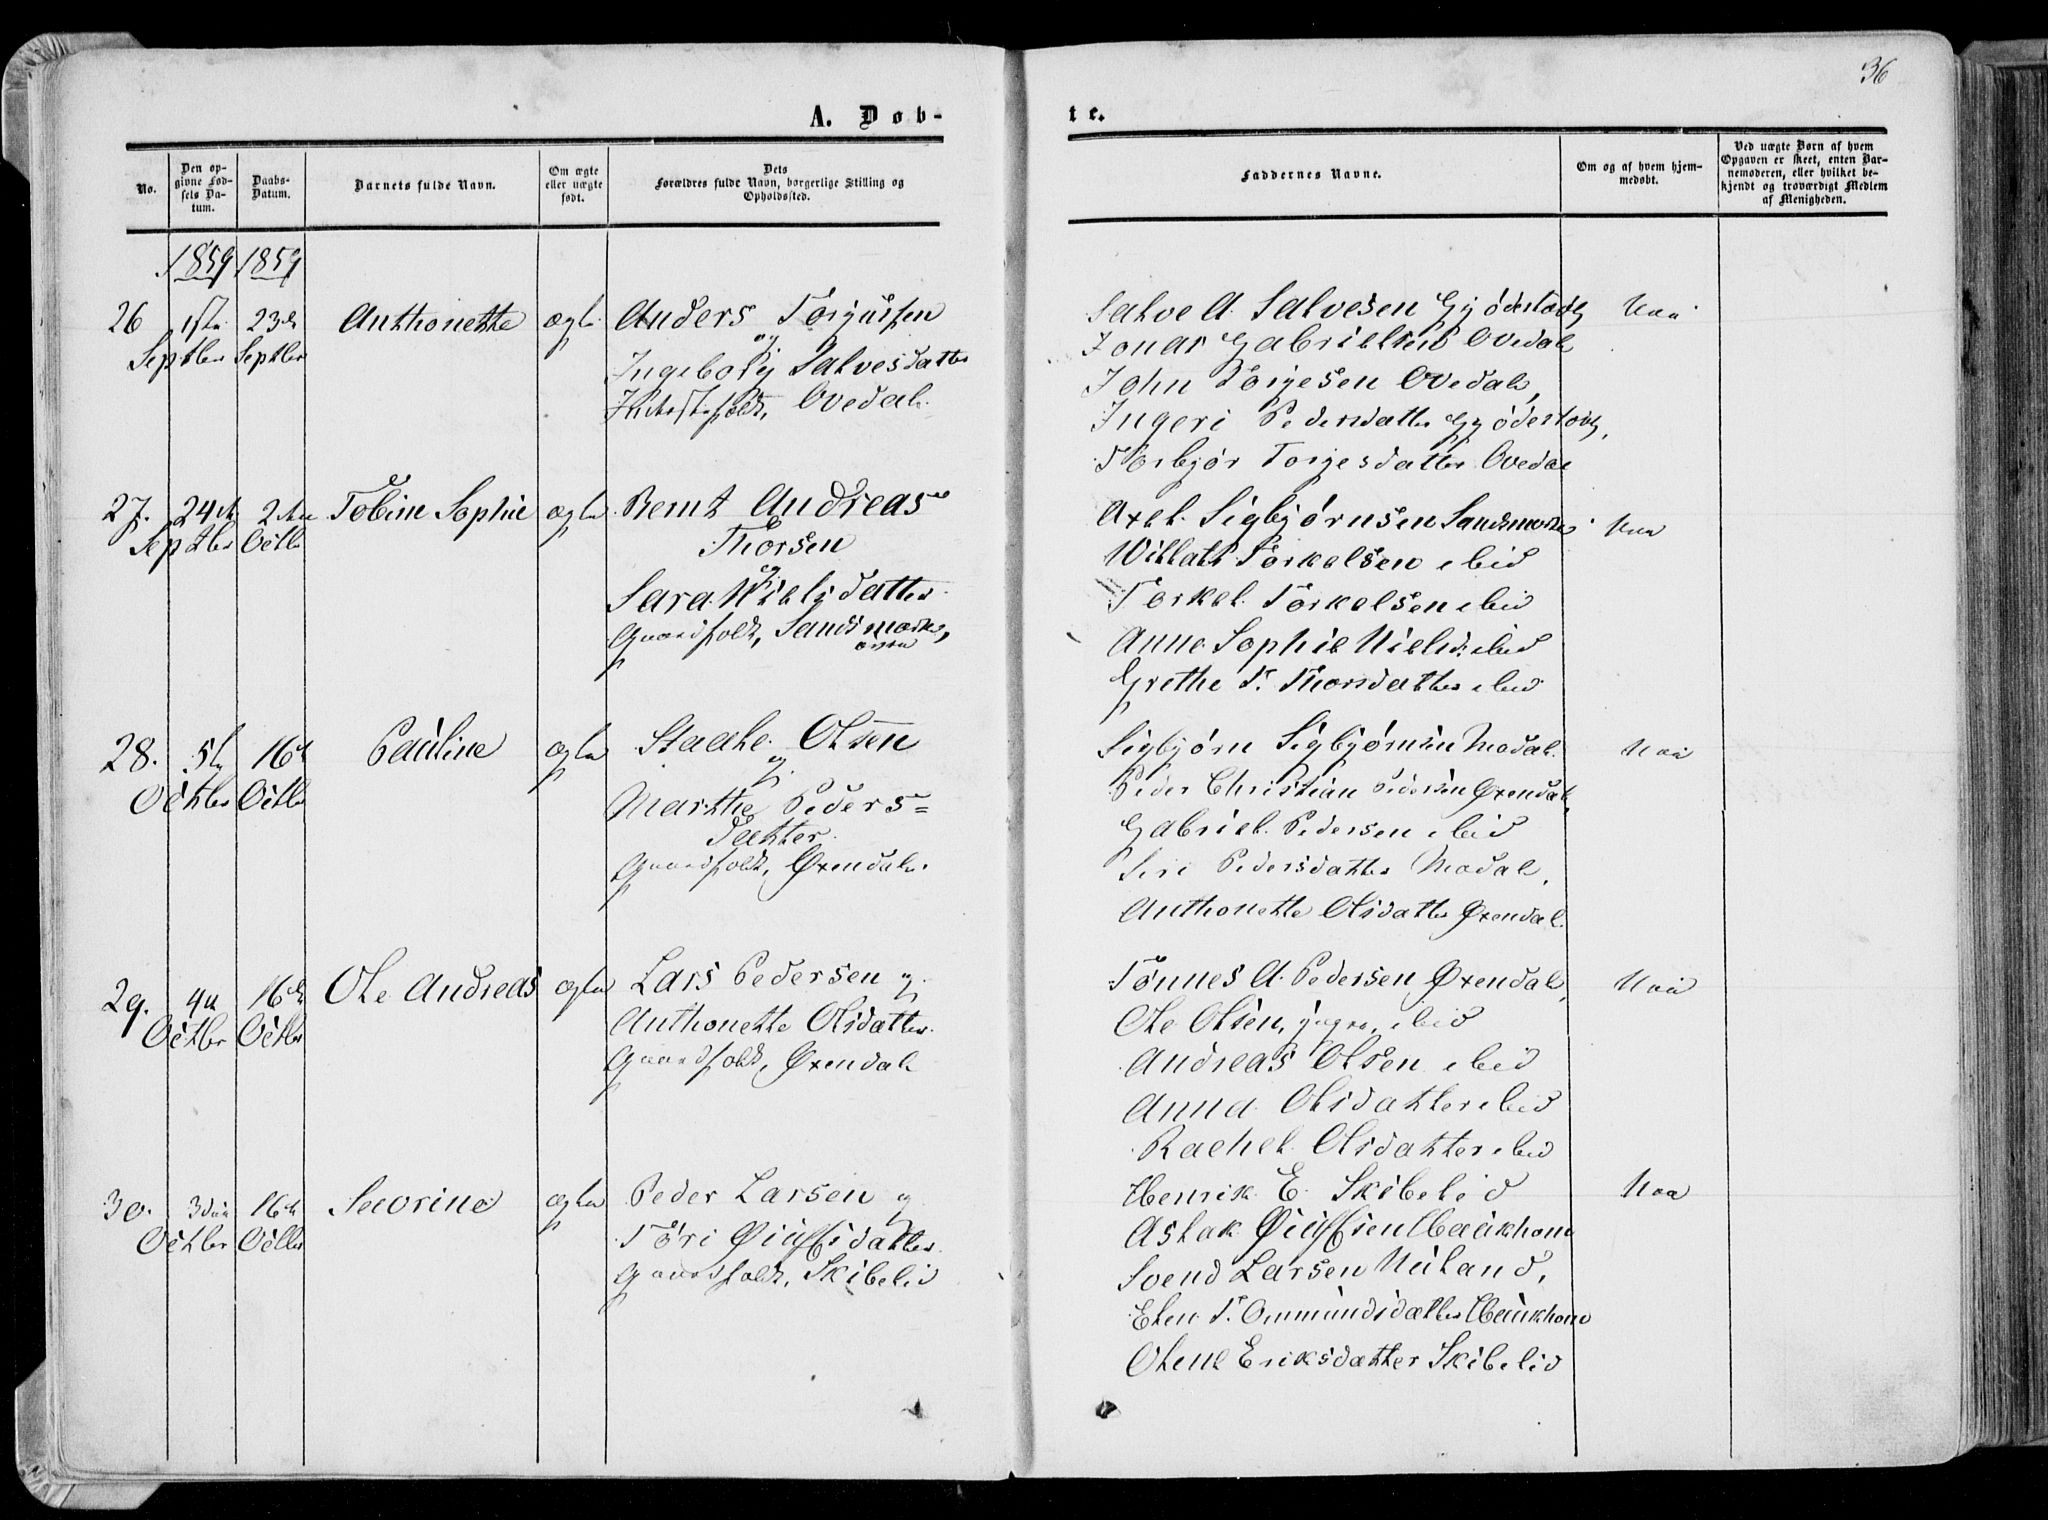 36
A. Døb-
te.
No.
Den op-
givne Fød-
sels Da-
tum.
Daabs-
Datum.
Barnets fulde Navn.
Om ægte
eller uægte
født.
Dets
Forældres fulde Navn, borgerlige Stilling og
Opholdssted.
Faddernes Navne.
Om og af hvem hjem-
medøbt.
Ved uægte Børn af hvem
Opgaven er skeet, enten Bar-
nemoderen, eller hvilket be-
kjendt og troværdigt Medlem
af Menigheden.
1859 1859
26 1ste 23de Anthonette ægte Anders Torjussen
Septber Septber og
Ingeborg Salvesdatter
Ovedal.
Salve A. Salvesen Gyøderstovlg
Jonas Gabrielsen Ovedal
John Torjesen Ovedal,
Ingeri Pedersdatter Gyøderstovlg,
Torbjør Torjesdatter Ovedal
27. 24de 2den Tobine Sophie ægte Bernt Andreas
Septber Octbr Thorsen
og
Sara Nielsdatter
Gaardfolk, Sandsmark,
øvre
Axel Sigbjørnsen Sandsmark
Willats Torkelsen ibid
Torkel Torkelsen ibid
Anne Sophie Nielsd. ibid
Grethe T. Thorsdatter ibid
28. 5te 16de Pauline ægte Staale Olsen
Octber Octbr og
Marthe Peders=
datter.
Gaardfolk, Øxendal.
Sigbjørn Sigbjørnsen Modal.
Peder Christian Pedersen Øxendal,
Gabriel Pedersen ibid
Siri Pedersdatter Modal,
Anthonette Olsdatter Øxendal.
29. 4de 16de Ole Andreas ægte Lars Pedersen og
Octbr Octbr Anthonette Olsdatter.
Gaardfolk, Øxendal
Tønnes A. Pedersen Øxendal,
Ole Olsen, yngre, ibid
Andreas Olsen ibid
Anna Olsdatter ibid
Rachel Olsdatter ibid
30. 3die 16de Secorine ægte Peder Larsen og
Octbr Octbr Tøri Øiulfsdatter.
Gaardfolk, Skibelid
Henrik E. Skibelid
Aslak Øiulfsen Haukhom
Svend Larsen Neiland,
Elen T. Ommundsdatter Haukhom
Olene Eriksdatter Skibelid